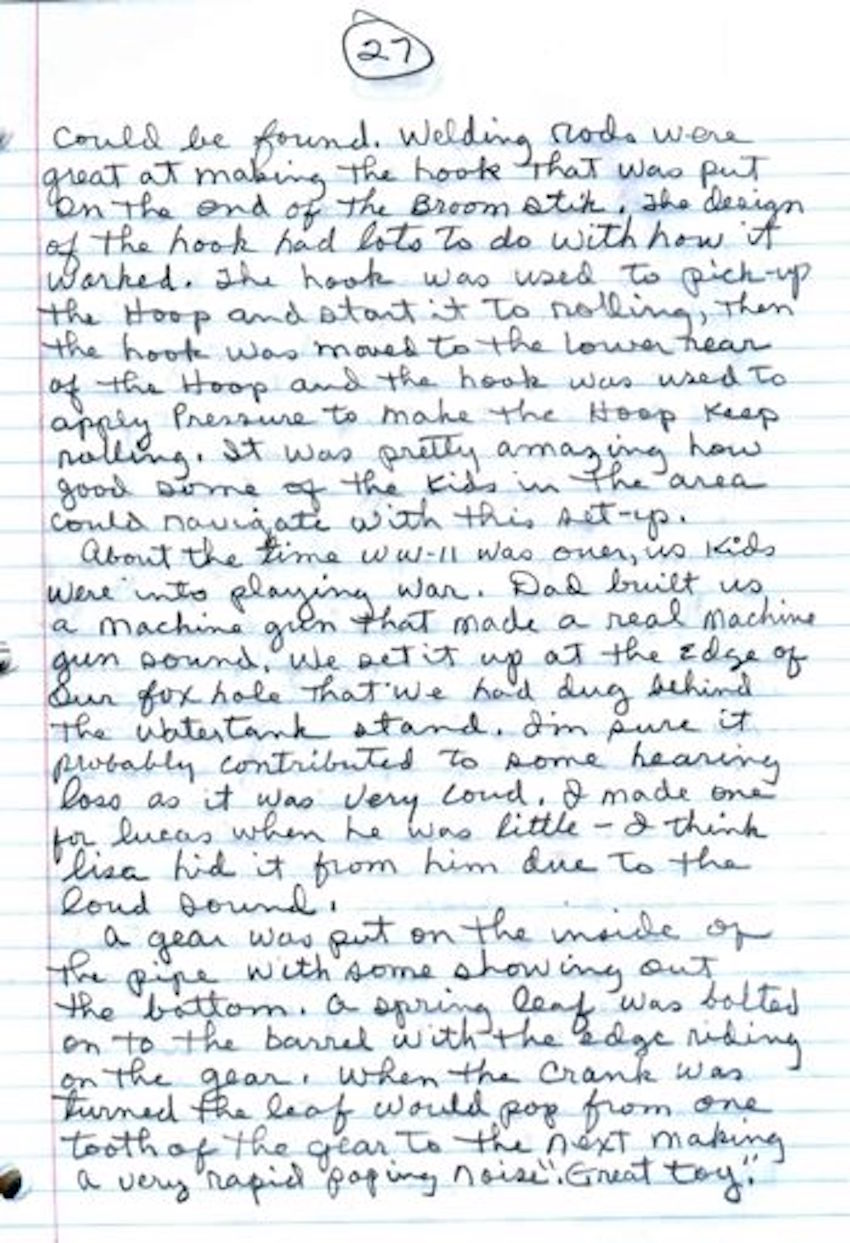 27
could be found. Welding rods were
great at making the hook that was put
on the end of the Broom stik. The design
of the hook had lots to do with how it
worked. The hook was used to pick-up
the Hoop and start it to rolling, then
the hook was moved to the lower rear
of the Hoop and the hook was used to
apply Pressure to make the Hoop keep
rolling. It was pretty amazing how
good some of the kids in the area
could navigate with this set-up.
About the time WW-11 was over, us kids
were into playing war. Dad built us
a machine gun that made a real machine
gun sound. We set it up at the edge of
our fox hole that we had dug behind
the watertank stand. I'm sure it
probably contributed to some hearing
loss as it was very loud. I made one
for lucas when he was little - I think
lisa hid it from him due to the
loud sound.
A gear was put on the inside of
the pipe with some showing out
the bottom. A spring leaf was bolted
on to the barrel with the edge riding
on the gear. When the crank was
turned the leaf would pop from one
tooth of the gear to the next making
a very rapid poping noise". Great toy".